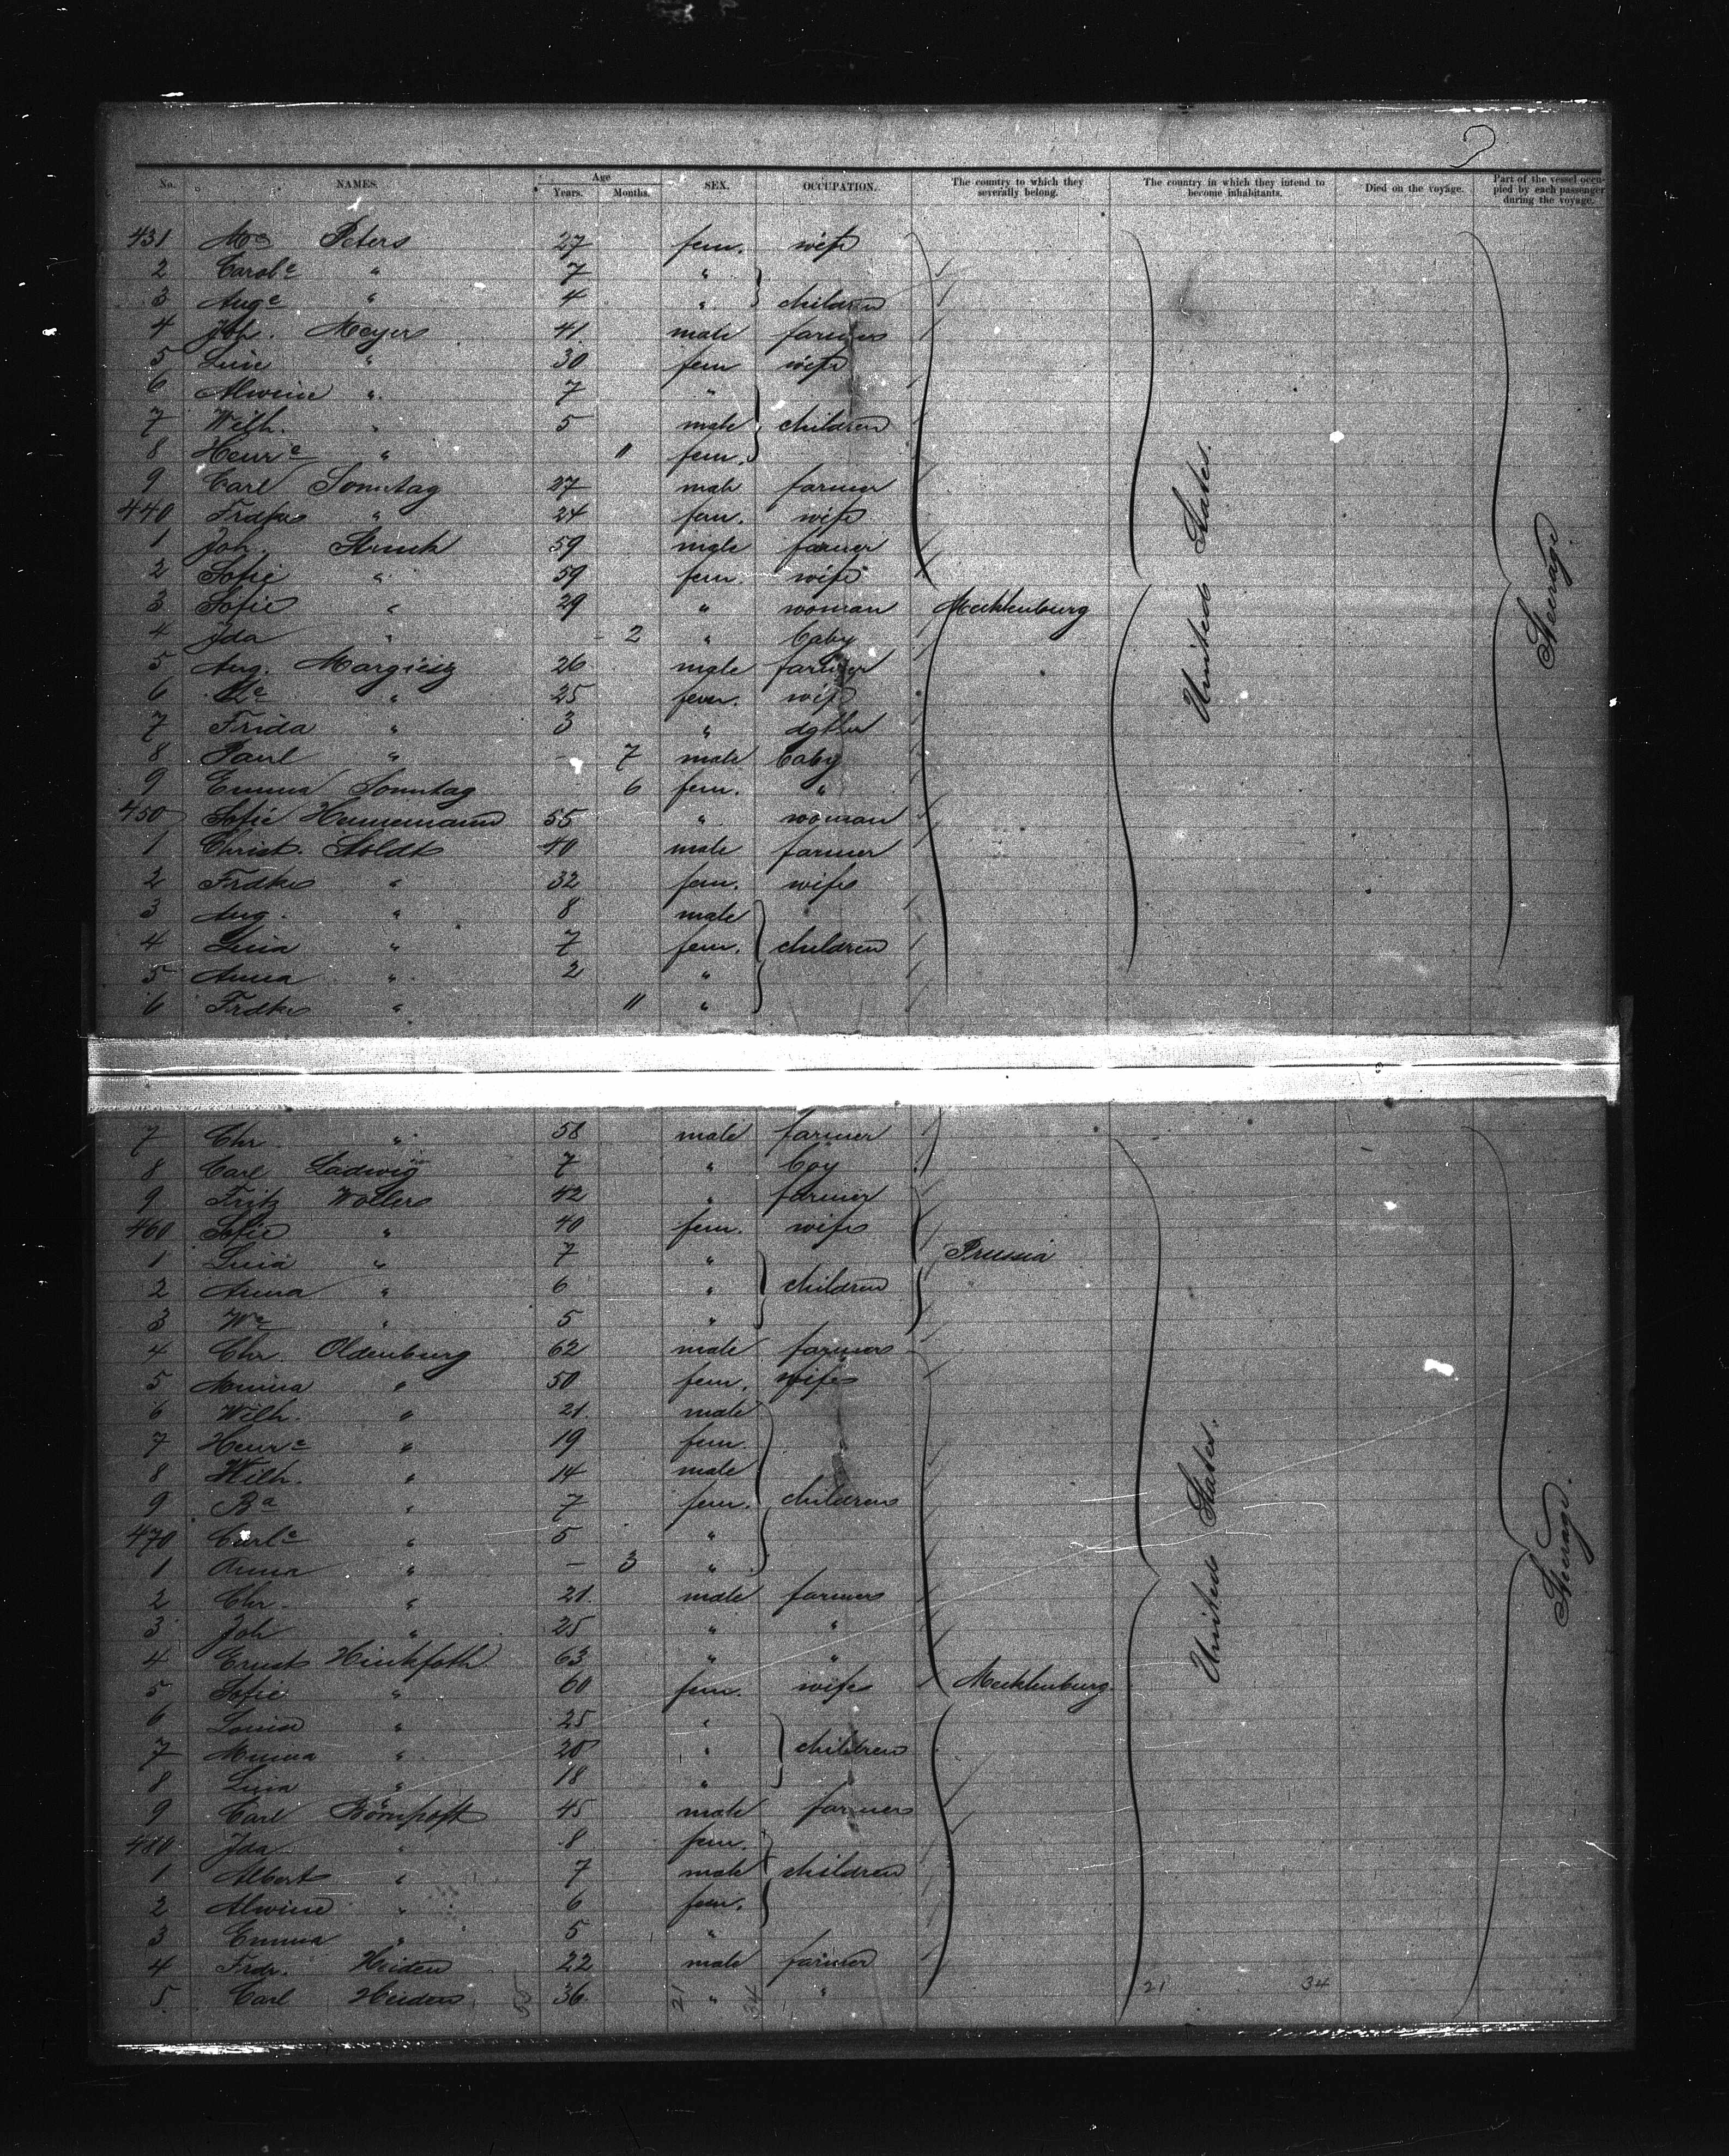 No. NAMES. Age Years. Months. SEX. OCCUPATION. The country to which they severally belong. The country in which they intend to become inhabitants. Died on the voyage. Part of the vessel occupied by each passenger during the voyage.
431 Mª Peters 27 fem. wife
2 Carolᵉ " 7 "
3 Augᵉ " 4 " children
4 Joh. Meyer 41 male farmer
5 Line " 30 fem wife
6 Alwine " 7 "
7 Wilh. " 5 male children
8 Henrᵉ " 11 fem.
9 Carl Sonntag 27 male farmer
440 Frdke " 24 fem. wife
1 Joh. Struck 59 male farmer
2 Sofie " 59 fem. wife
3 Sofie " 29 " woman Mecklenburg
4 Ida " - 2 " baby
5 Aug. 26 male farmer
6 " 25 fem. wife
7 Frida " 3 " dghter
8 Paul " - 7 male baby
9 Emma Sonntag 6 fem. "
450 Sofie Hennemann 55 " woman
1 Christ. Stoldt 40 male farmer
2 Frdke " 32 fem. wife
3 Aug. " 8 male
4 Lina " 7 fem. children
5 Anna " 2 "
6 Frdke " 11 "
United States.
Steerage
7 Chr. " 58 male farmer
8 Carl Ladwig 7 " boy
9 Fritz Wollers 42 " farmer
460 Sofie " 40 fem. wife
1 Lina " 7 " Prussia
2 Anna " 6 " children
3 Wᵉ " 5 "
4 Chr. Oldenburg 62 male farmer
5 Minna " 50 fem. wife
6 Wilh. " 21 male
7 Henrᵉ " 19 fem.
8 Wilh. " 14 male
9 Bª " 7 fem. children
470 Carlᵉ " 5 "
1 Anna " - 3 "
2 Chr. " 21 male farmer
3 Joh " 25 " "
4 Ernst Hinkfoth 63 " "
5 Sofie " 60 fem. wife Mecklenburg
6 Louise " 25 "
7 Minna " 20 " children
8 Lina " 18 "
9 Carl 45 male farmer
480 Ida " 8 fem.
1 Albert " 7 male children
2 Alwine " 6 fem.
3 Emma " 5 "
4 Frdr. Heiden 22 male farmer
5 Carl Heiden 36 " "
55 21 34 21 34
United States.
Steerage.